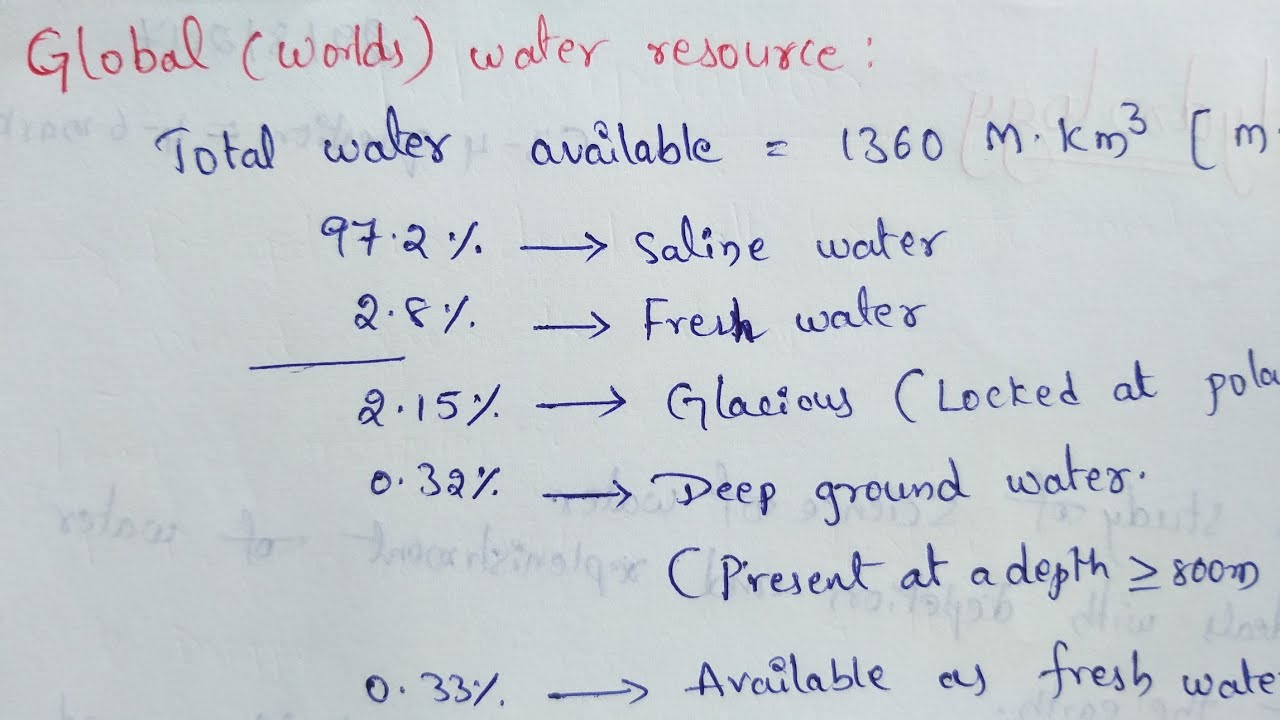 Global (Worlds) water resource :
Total water available = 1360 M.Km³ [ m.
97.2% → Saline water
2.8% → Fresh water
2.15% → Glacious (Locked at pola
0.32% → Deep ground water.
(Present at a depth ≥ 800m
0.33% → Available as fresh wate